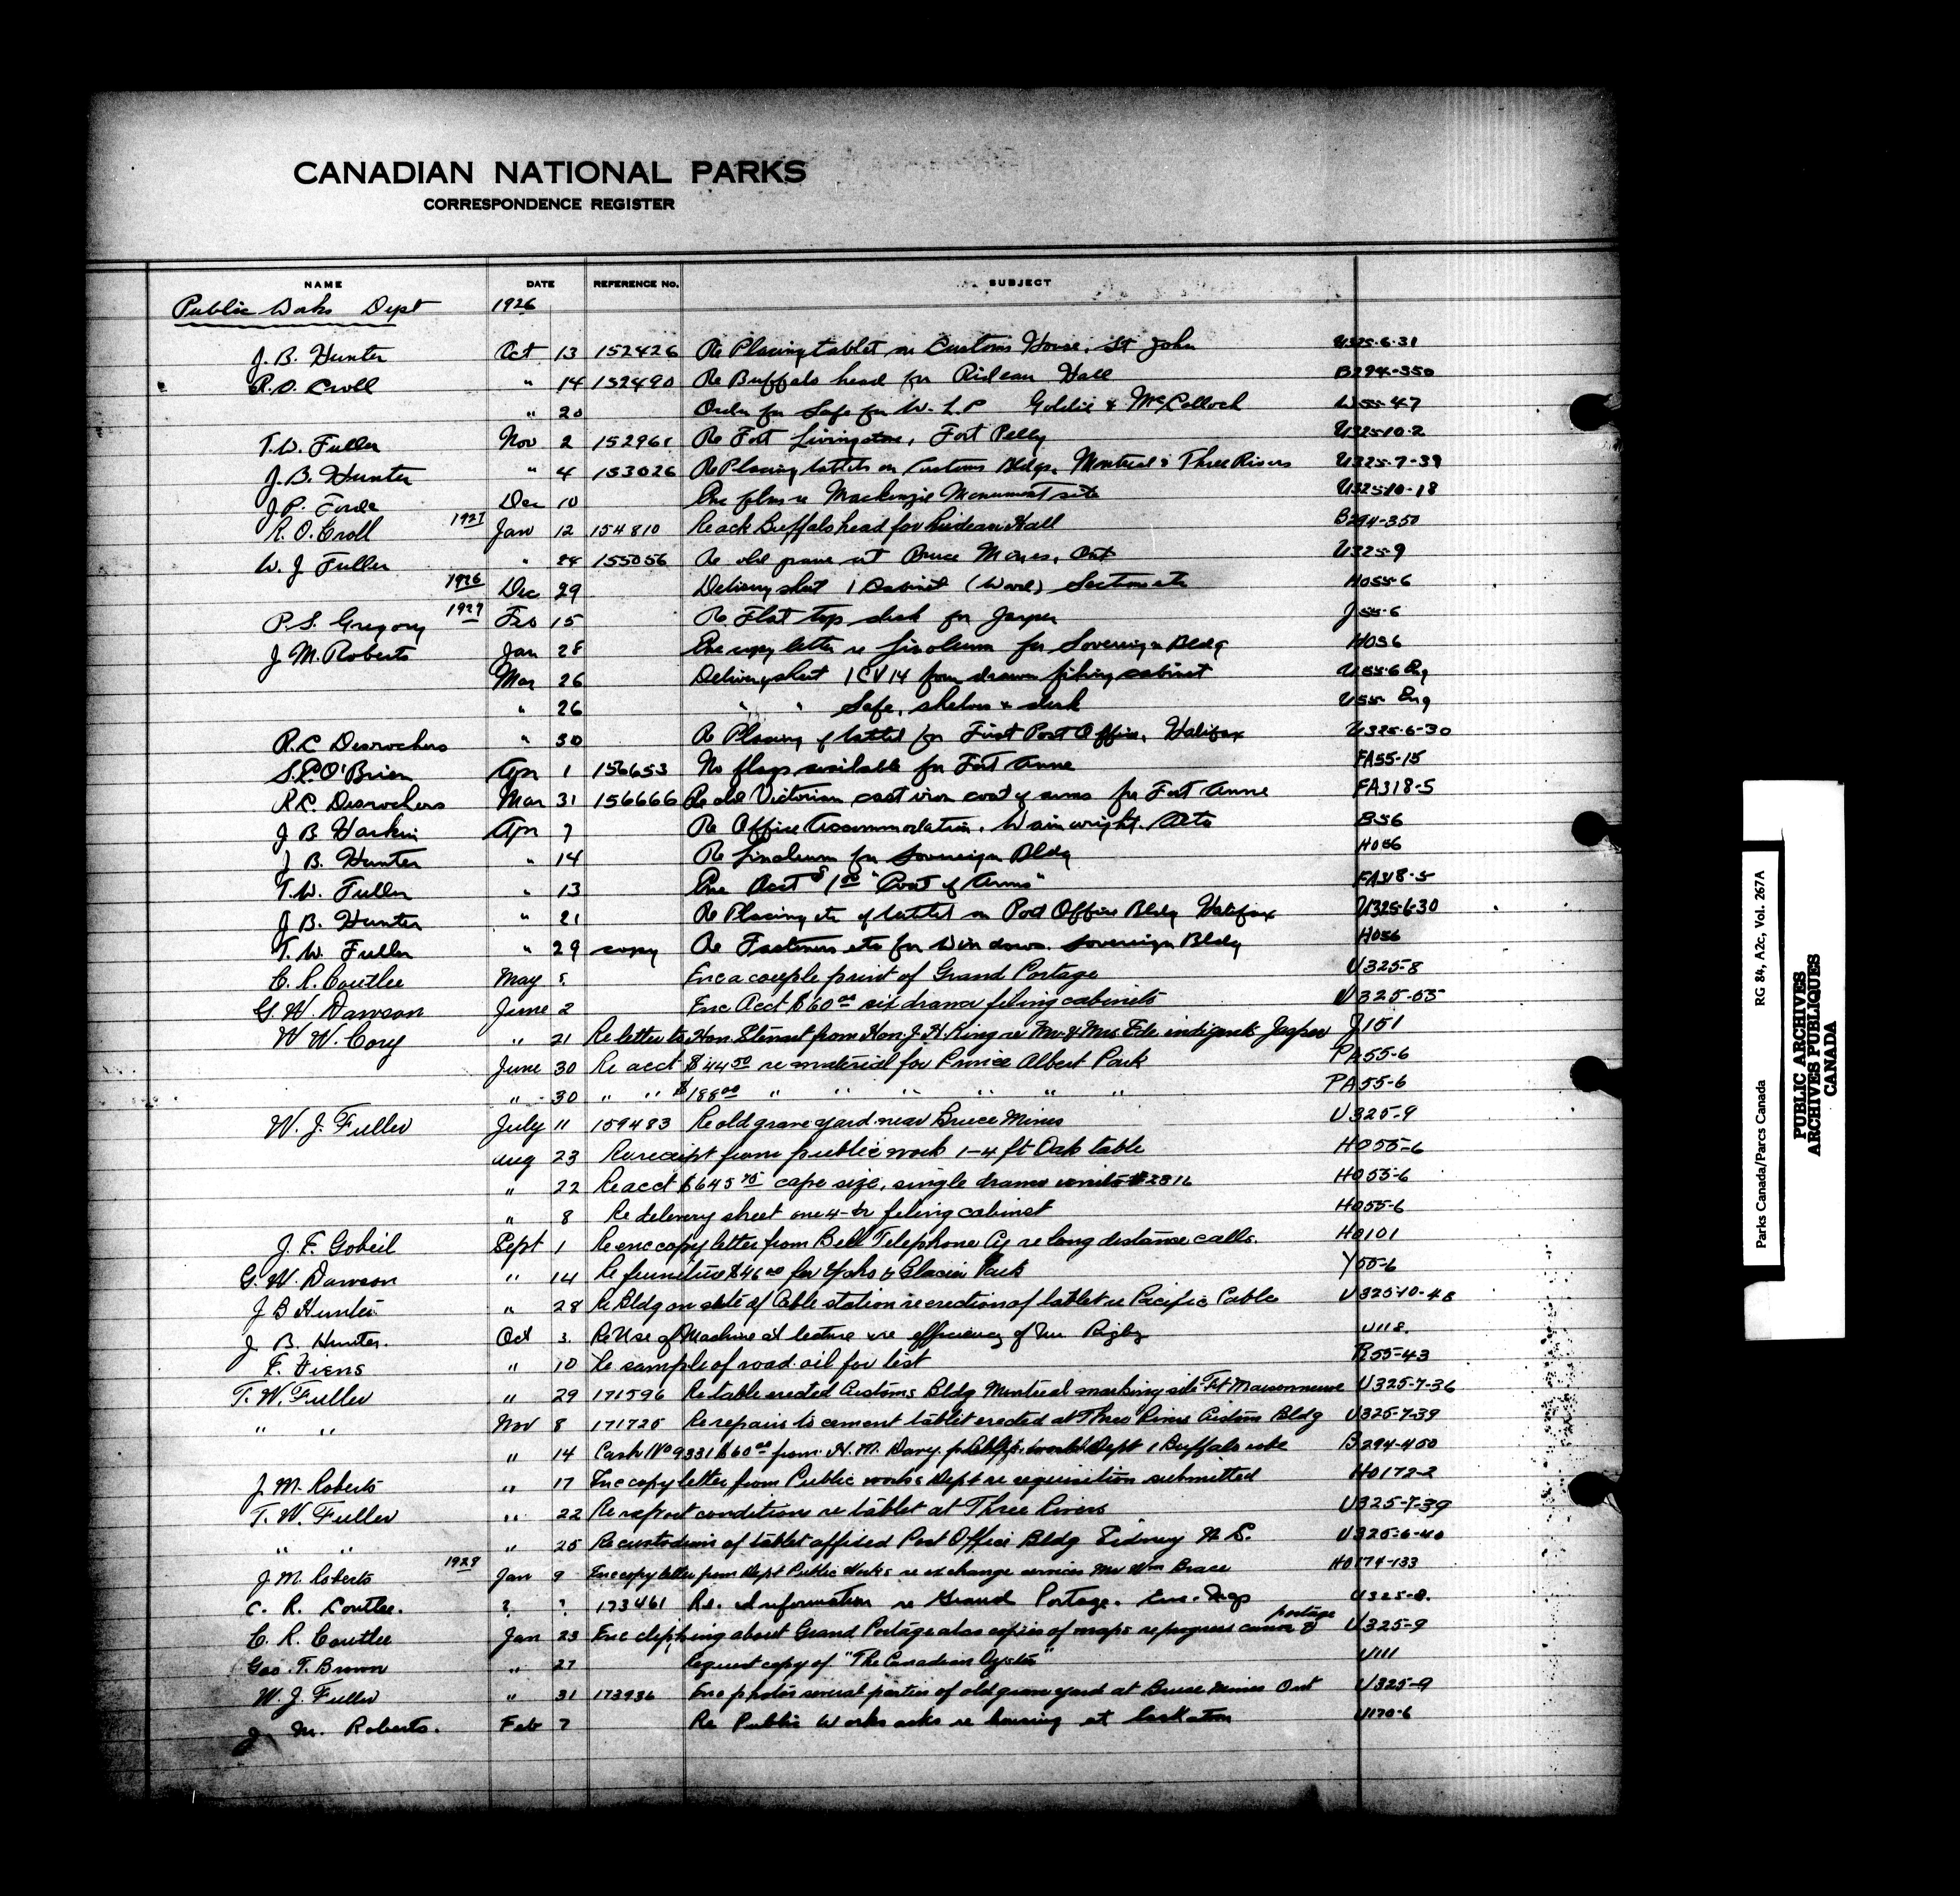 CANADIAN NATIONAL PARKS
CORRESPONDENCE REGISTER
NAME DATE REFERENCE No. SUBJECT
Public Works Dept 1926
J. B. Hunter Oct 13 152426 Re Placing tablet on Customs House, St John U325-6-31
R. O. Croll " 14 152490 Re Buffalo head for Rideau Hall B294-350
" 20 Order for Safe for W. L. P Goldie & McColloch W55-47
T. W. Fuller Nov 2 152961 Re Fort Livingstone, Fort Pelly U325-10-2
J. B. Hunter " 4 153026 Re Placing tablets on Customs Bldgs, Montreal & Three Rivers U325-7-39
J. P. Forde Dec 10 Enc plan re Mackenzie Monument site U325-10-18
R. O. Croll 1927 Jan 12 154810 Re ack Buffalo head for Rideau Hall B294-350
W. J. Fuller " 24 155056 Re old grave at Bruce Mines, Ont U325-9
1926 Dec 29 Delivery sheet 1 Cabinet (Ward) Sections etc HO55-6
P. S. Gregory 1927 Feb 15 Re Flat top desk for Jasper J55-6
J. M. Roberts Jan 28 Enc copy letter re linoleum for Sovereign Bldg HO56
Mar 26 Delivery sheet 1 CV14 four drawer filing cabinet U55-6 Eng
" 26 " " Safe, shelves & desk U55 Eng
R. C Desrochers " 30 Re Placing of tablet for First Post Office, Halifax U325-6-30
S. P. O'Brien Apr 1 156653 No flags available for Fort Anne FA55-15
R. C. Desrochers Mar 31 156666 Re old Victorian cast iron coat of arms for Fort Anne FA318-5
J B Harkin Apr 7 Re Office Accommodation, Wainwright, Alta B56
J. B. Hunter " 14 Re Linoleum for Sovereign Bldg HO56
T. W. Fuller " 13 Enc Acct $1.00 "Coat of Arms" FA318-5
J B. Hunter " 21 Re Placing etc of tablet on Post Office Bldg Halifax U325-6-30
T. W. Fuller " 29 copy Re Fasteners etc for Windows. Sovereign Bldg HO56
C. R. Coutlee May 5 Enc a couple print of Grand Portage U325-8
G. W. Dawson June 2 Enc Acct $60.00 six drawer filing cabinets U325-55
W W. Cory " 21 Re letter to Hon. Stewart from Hon. J. H. King re Mr & Mrs Ede indigents Jasper J151
June 30 Re acct $44.50 re material for Prince Albert Park PA55-6
" 30 " " $188.00 " " " " " " PA55-6
W. J. Fuller July 11 159483 Re old grave yard near Bruce Mines U325-9
Aug 23 Re receipt from public work 1-4 ft Oak table HO55-6
" 22 Re acct $645.75 cape size, single drawer units #2816 HO55-6
" 8 Re delivery sheet one 4-dr filing cabinet HO55-6
J. F. Gobeil Sept 1 Re enc copy letter from Bell Telephone Cy re long distance calls. HO101
G. W. Dawson " 14 Re furniture $46.00 for Yoho & Glacier Park Y55-6
J B Hunter " 28 Re Bldg on site of Cable station re erection of tablet re Pacific Cable U325-10-48
J. B. Hunter. Oct 3. Re Use of Machine at lecture re efficiency of Mr Rigby U118.
F. Viens " 10 Re sample of road oil for test R55-43
T. W. Fuller " 29 171596 Re table erected Customs Bldg Montreal marking site Ft Maisonneuve U325-7-36
" " Nov 8 171725 Re repairs to cement tablet erected at Three Rivers Custom Bldg U325-7-39
" 14 Cash No 9331 $60.00 from H. M. Davy Dept 1 Buffalo robe B294-450
J. M. Roberts " 17 Enc copy letter from Public works Dept re requisition submitted HO172-2
T. W. Fuller " 22 Re report conditions re tablet at Three Rivers U325-7-39
" " " 25 Re custodians of tablet affixed Post Office Bldg Sidney N. S. U325-6-40
J. M. Roberts 1928 Jan 9 Enc copy letter from Dept Public Works re exchange services Mr Wm Brace HO174-133
C. R. Coutlee. ? ? 173461 Re. Information re Grand Portage. Enc. Map U325-8.
C. R. Coutlee Jan 23 Enc clipping about Grand Portage also copies of maps re progress canoe & portage U325-9
Geo. T. Brown " 27 Request copy of "The Canadian Oyster" U111
W. J. Fuller " 31 173936 Enc photos several parties of old grave yard at Bruce Mines Ont U325-9
J. M. Roberts. Feb 7 Re Public Works asks re housing at U170-6
Parks Canada/Parcs Canada RG 84, A2c, Vol. 267A
PUBLIC ARCHIVES
ARCHIVES PUBLIQUES
CANADA